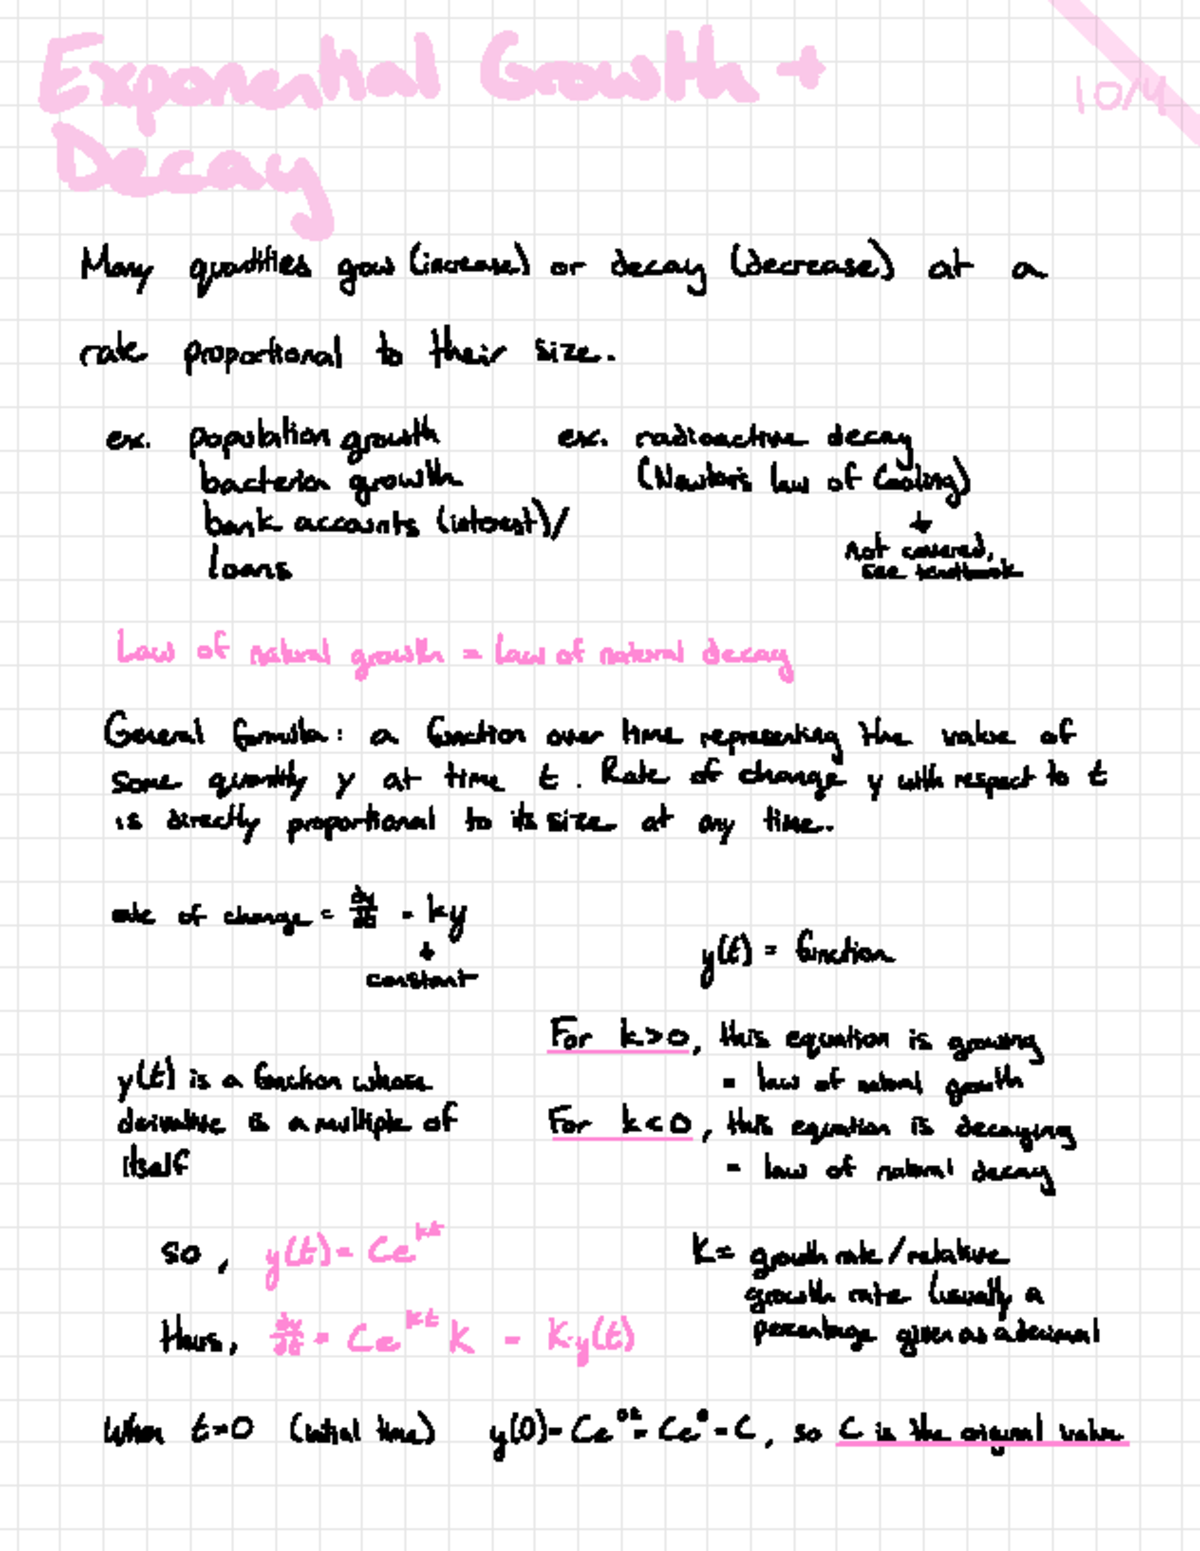 Exponential Growth +
Decay
10/4
Many quantities grow (increase) or decay (decrease) at a
rate proportional to their size.
ex. population growth
bacteria growth
bank accounts (interest)/
loans
ex. radioactive decay
(Newton's law of Cooling)
↓
not covered,
see textbook
Law of natural growth = law of natural decay
General formula: a function over time representing the value of
some quantity y at time t. Rate of change y with respect to t
is directly proportional to its size at any time.
rate of change = dy/dt = ky
↓
constant
y(t) = function
y(t) is a function whose
derivative is a multiple of
itself
For k>0, this equation is growing
= law of natural growth
For k<0, this equation is decaying
= law of natural decay
so, y(t) = Ce^kt
thus, dy/dt = Ce^kt k = k·y(t)
k = growth rate/relative
growth rate (usually a
percentage given as a decimal
When t=0 (initial time) y(0) = Ce^0k = Ce^0 = C, so C is the original value